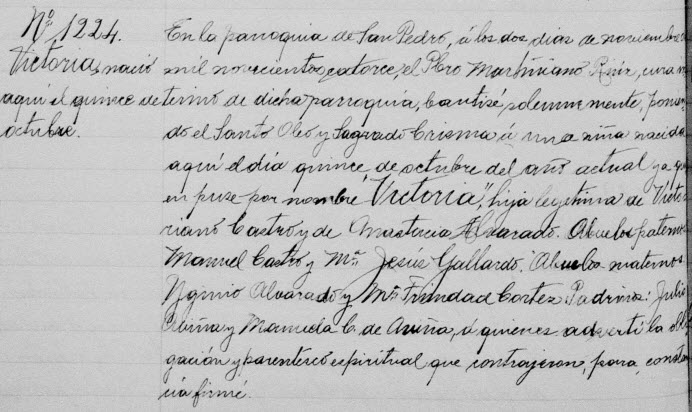 No 1224.
Victoria, nació
aquí el quince de
octubre.
En la parroquia de San Pedro, á los dos dias de noviembre d
mil novecientos catorce, el Pbro Martiniano Ruiz, cura in
terino de dicha parroquia, bautisé solemnemente, ponien
do el Santo Oleo y Sagrado Crisma á una niña nacida
aquí el día quince, de octubre del año actual, y a qui
en puse por nombre "Victoria", hija legítima de Victo
riano Castro y de Anastacia Alvarado. Abuelos paternos
Manuel Castro y Ma. Jesus Gallardo. Abuelos maternos
Ygnio Alvarado y Ma Trinidad Cortez. Padrinos: Julio
Aviña y Manuela C. de Aviña, á quienes advertí la obli
gación y parentesco espiritual que contrajeron, para constan
cia firmé.